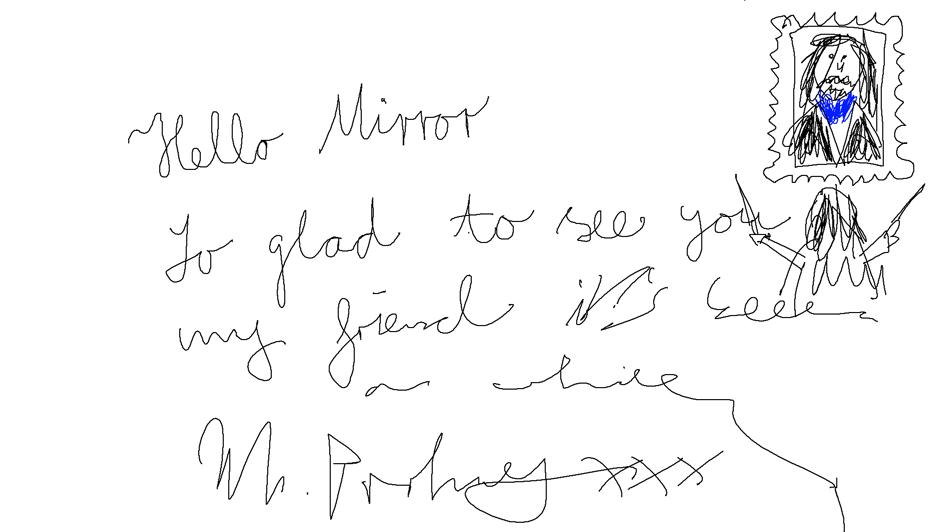 Hello Mirror
So glad to see you
my friend it's been
a while
Mr.
xxx